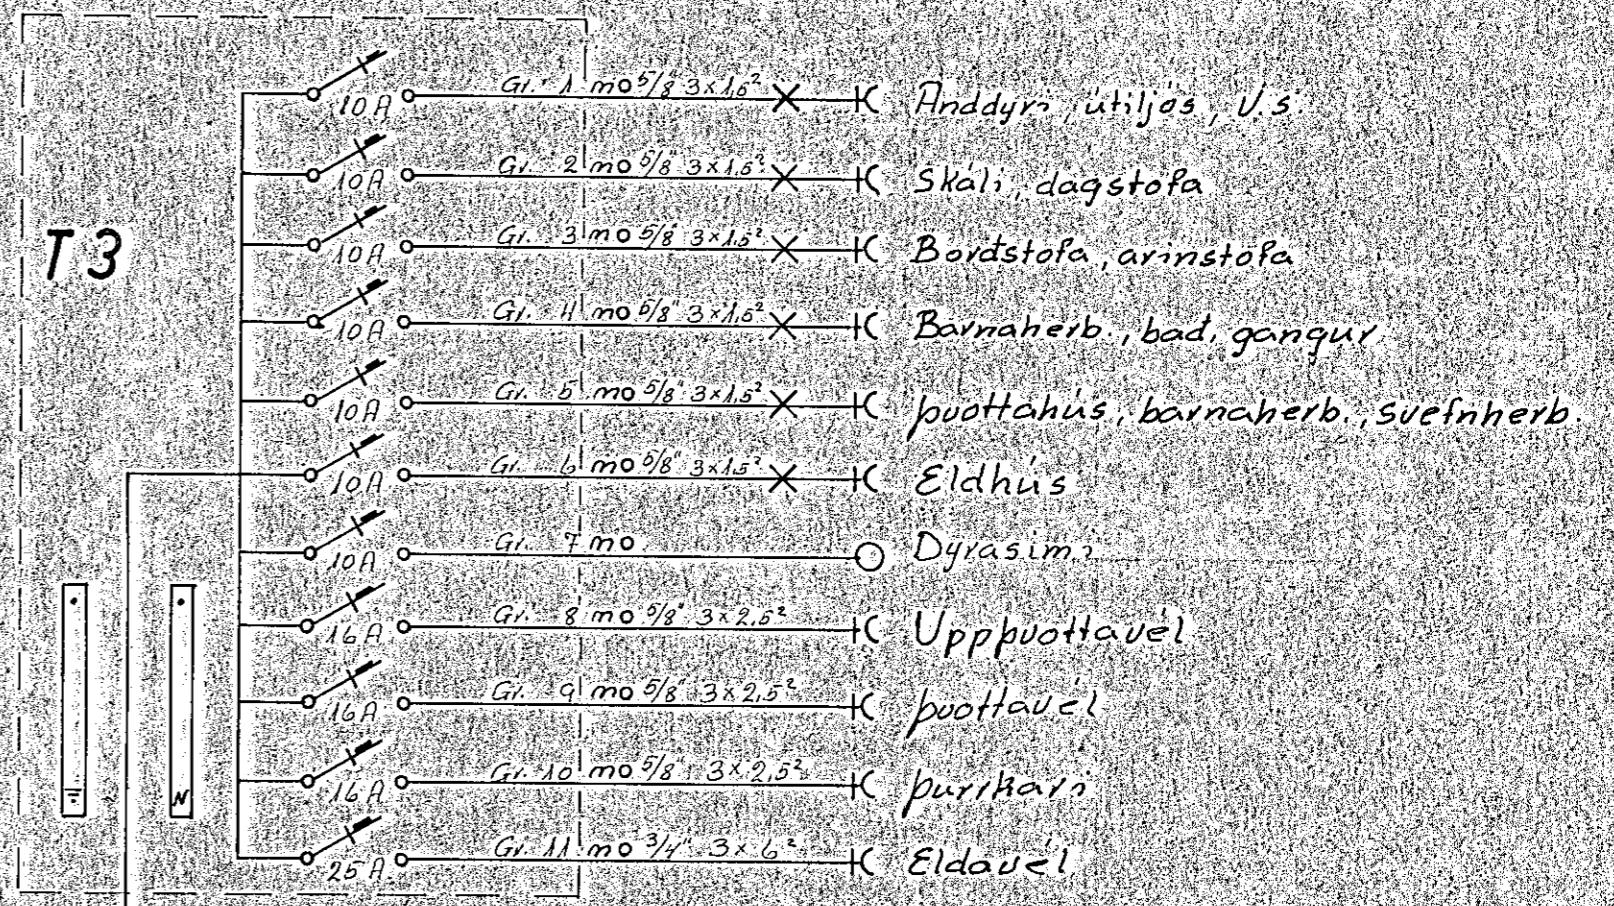 Gr. 1 mo 5/8" 3×1,5² Anddyri, útiljós, V.s.
10A
Gr. 2 mo 5/8" 3×1,5² Skáli, dagstofa
10A
T3
Gr. 3 mo 5/8" 3×1,5² Bordstofa, arinstofa
10A
Gr. 4 mo 5/8" 3×1,5² Barnaherb., bad, gangur
10A
Gr. 5 mo 5/8" 3×1,5² þvottahús, barnaherb., svefnherb.
10A
Gr. 6 mo 5/8" 3×1,5² Eldhús
10A
Gr. 7 mo Dyrasimi
10A
Gr. 8 mo 5/8" 3×2,5² Uppþvottavél
16A
Gr. 9 mo 5/8" 3×2,5² þvottavél
16A
Gr. 10 mo 5/8" 3×2,5² þurrkari
16A
N
Gr. 11 mo 3/4" 3×6² Eldavél
25A